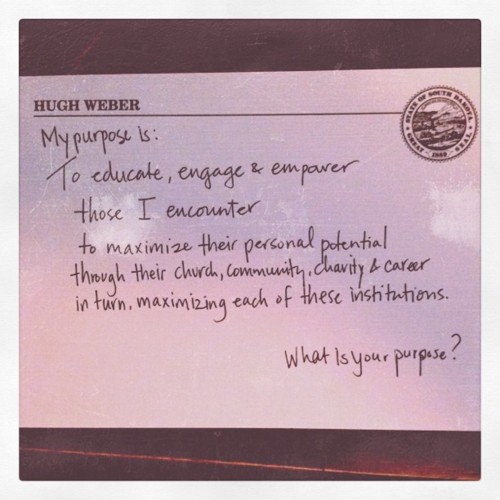 HUGH WEBER
STATE OF SOUTH DAKOTA
GREAT SEAL
1889
My purpose is:
To educate, engage & empower
those I encounter
to maximize their personal potential
through their church, community, charity & career
in turn, maximizing each of these institutions.
What is your purpose?